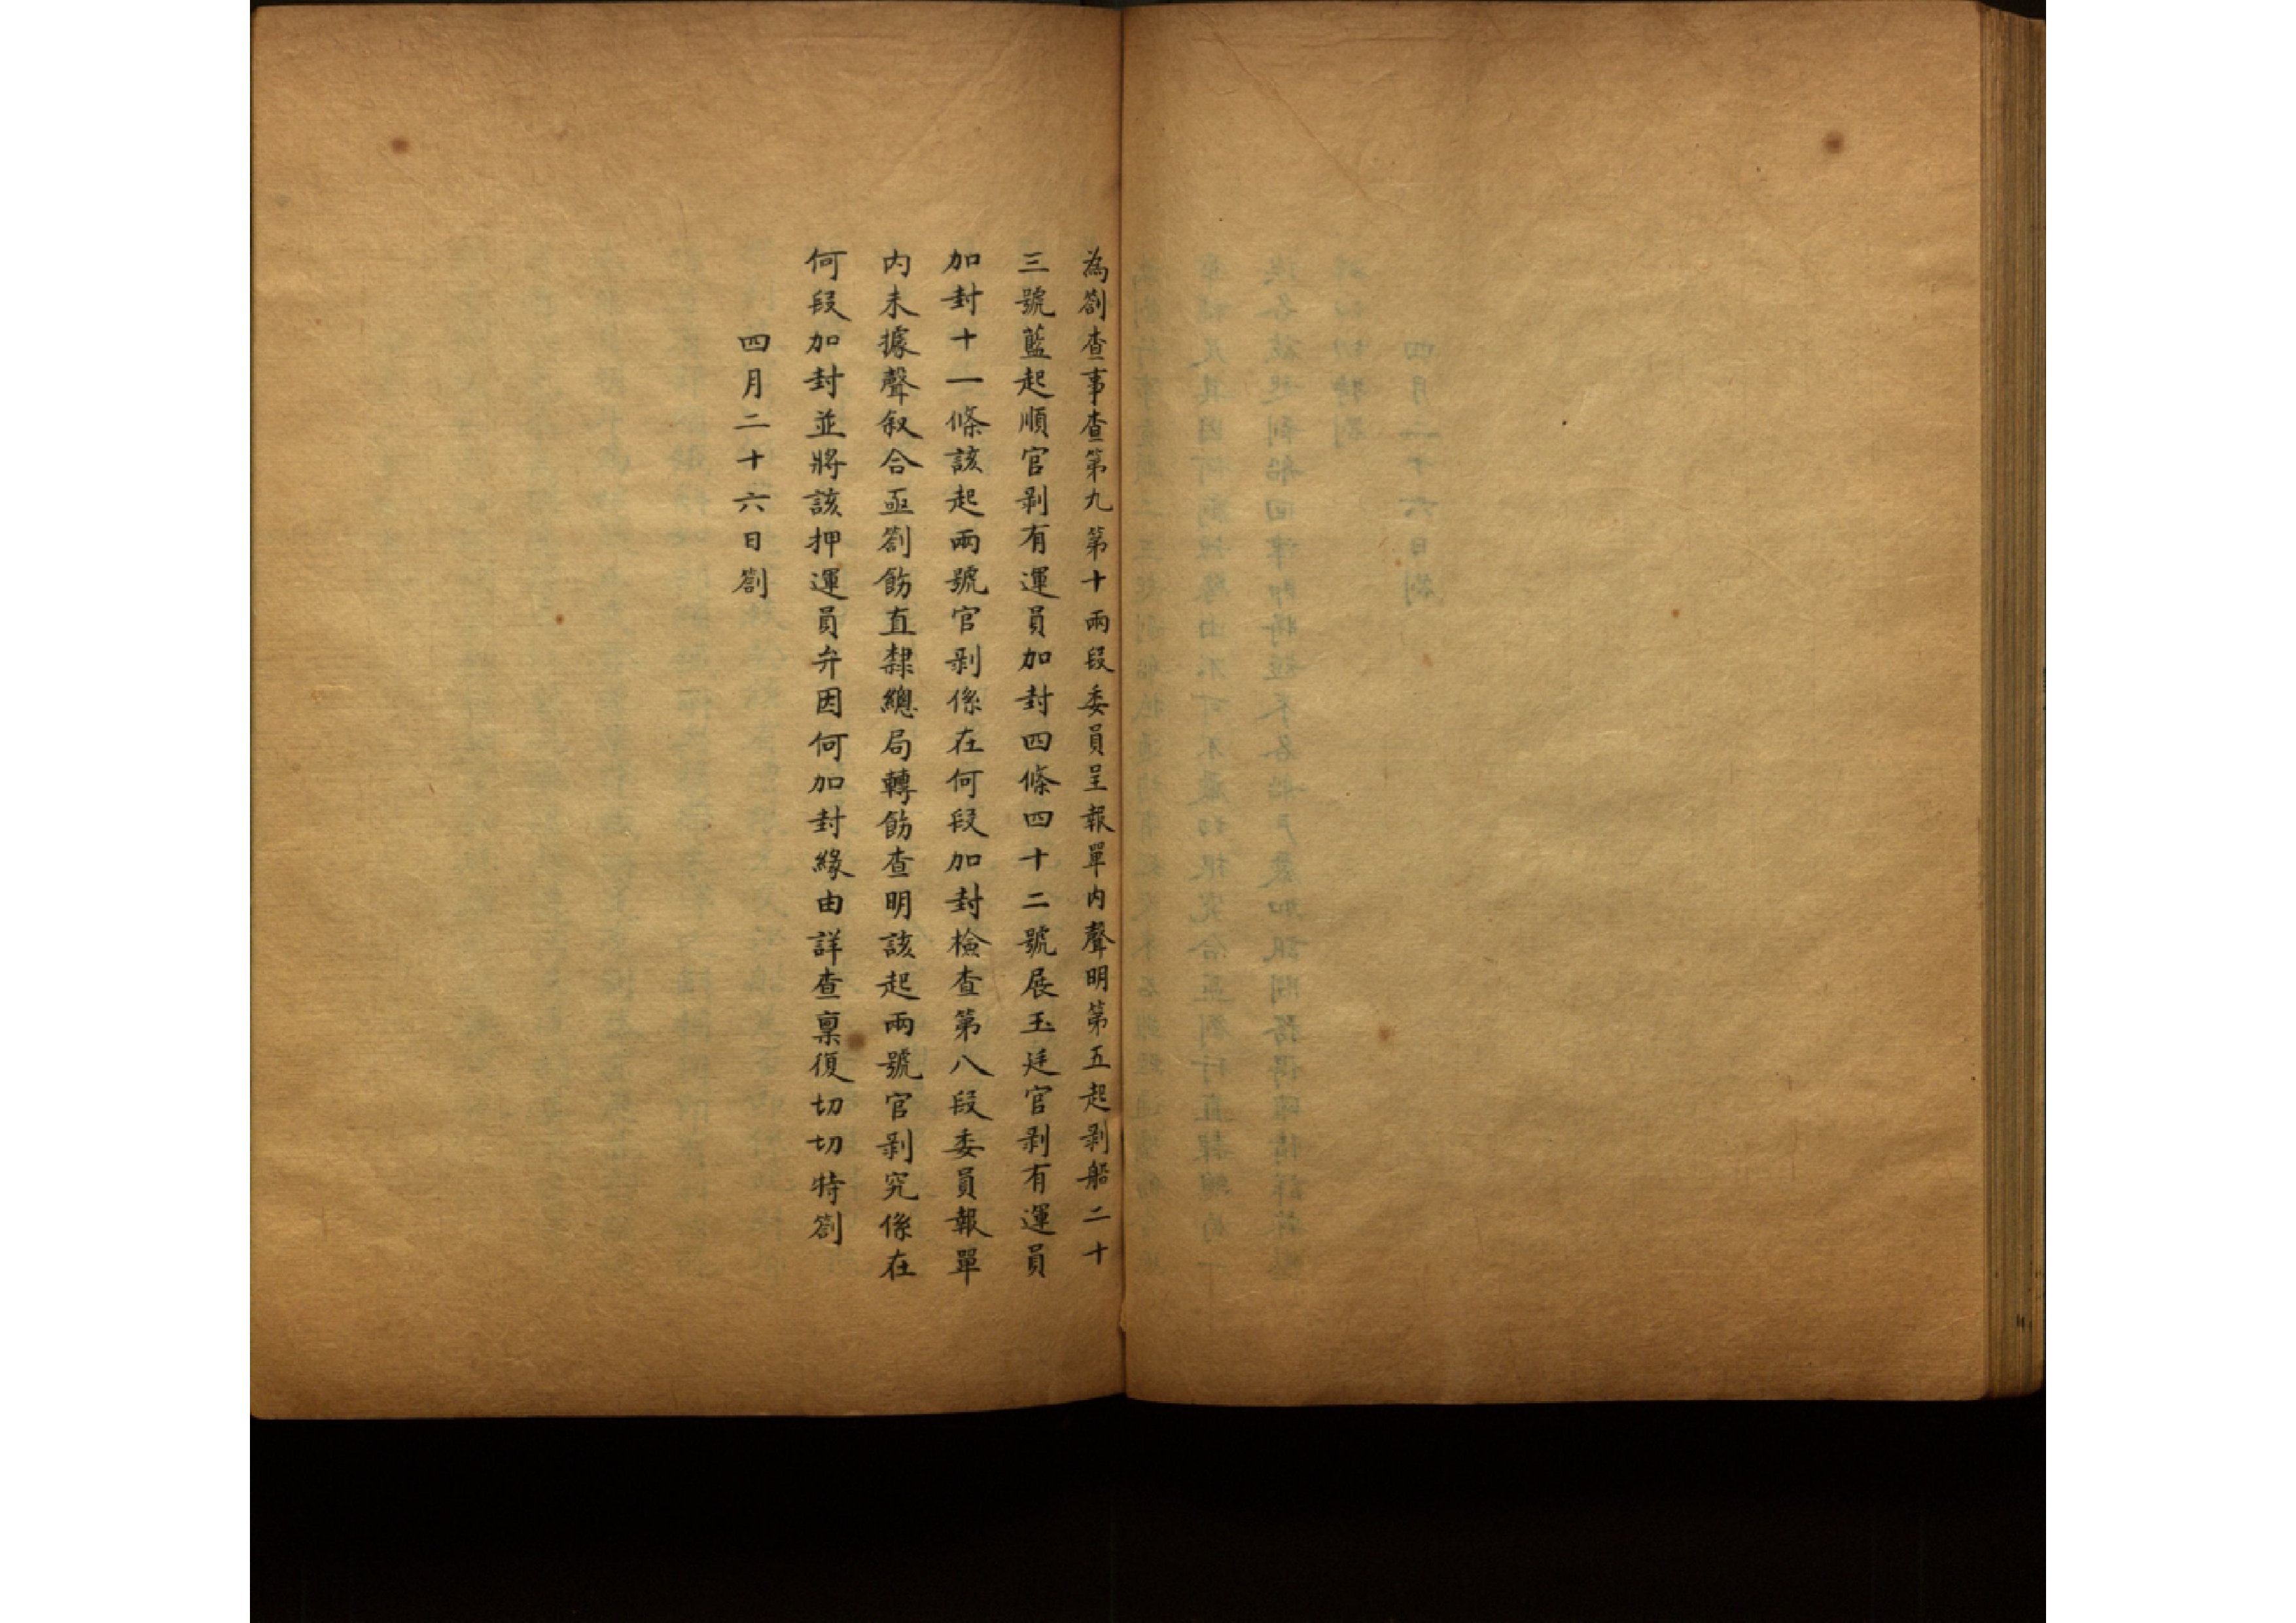 為劄查事查第九第十兩段委員呈報單内聲明第五起剥船二十
三號藍起順官剥有運員加封四條四十二號展玉廷官剥有運員
加封十一條該起兩號官剥係在何段加封檢查第八段委員報單
内未據聲叙合亟劄飭直隸總局轉飭查明該起兩號官剥究係在
何段加封並將該押運員弁因何加封緣由詳查稟復切切特劄
四月二十六日劄